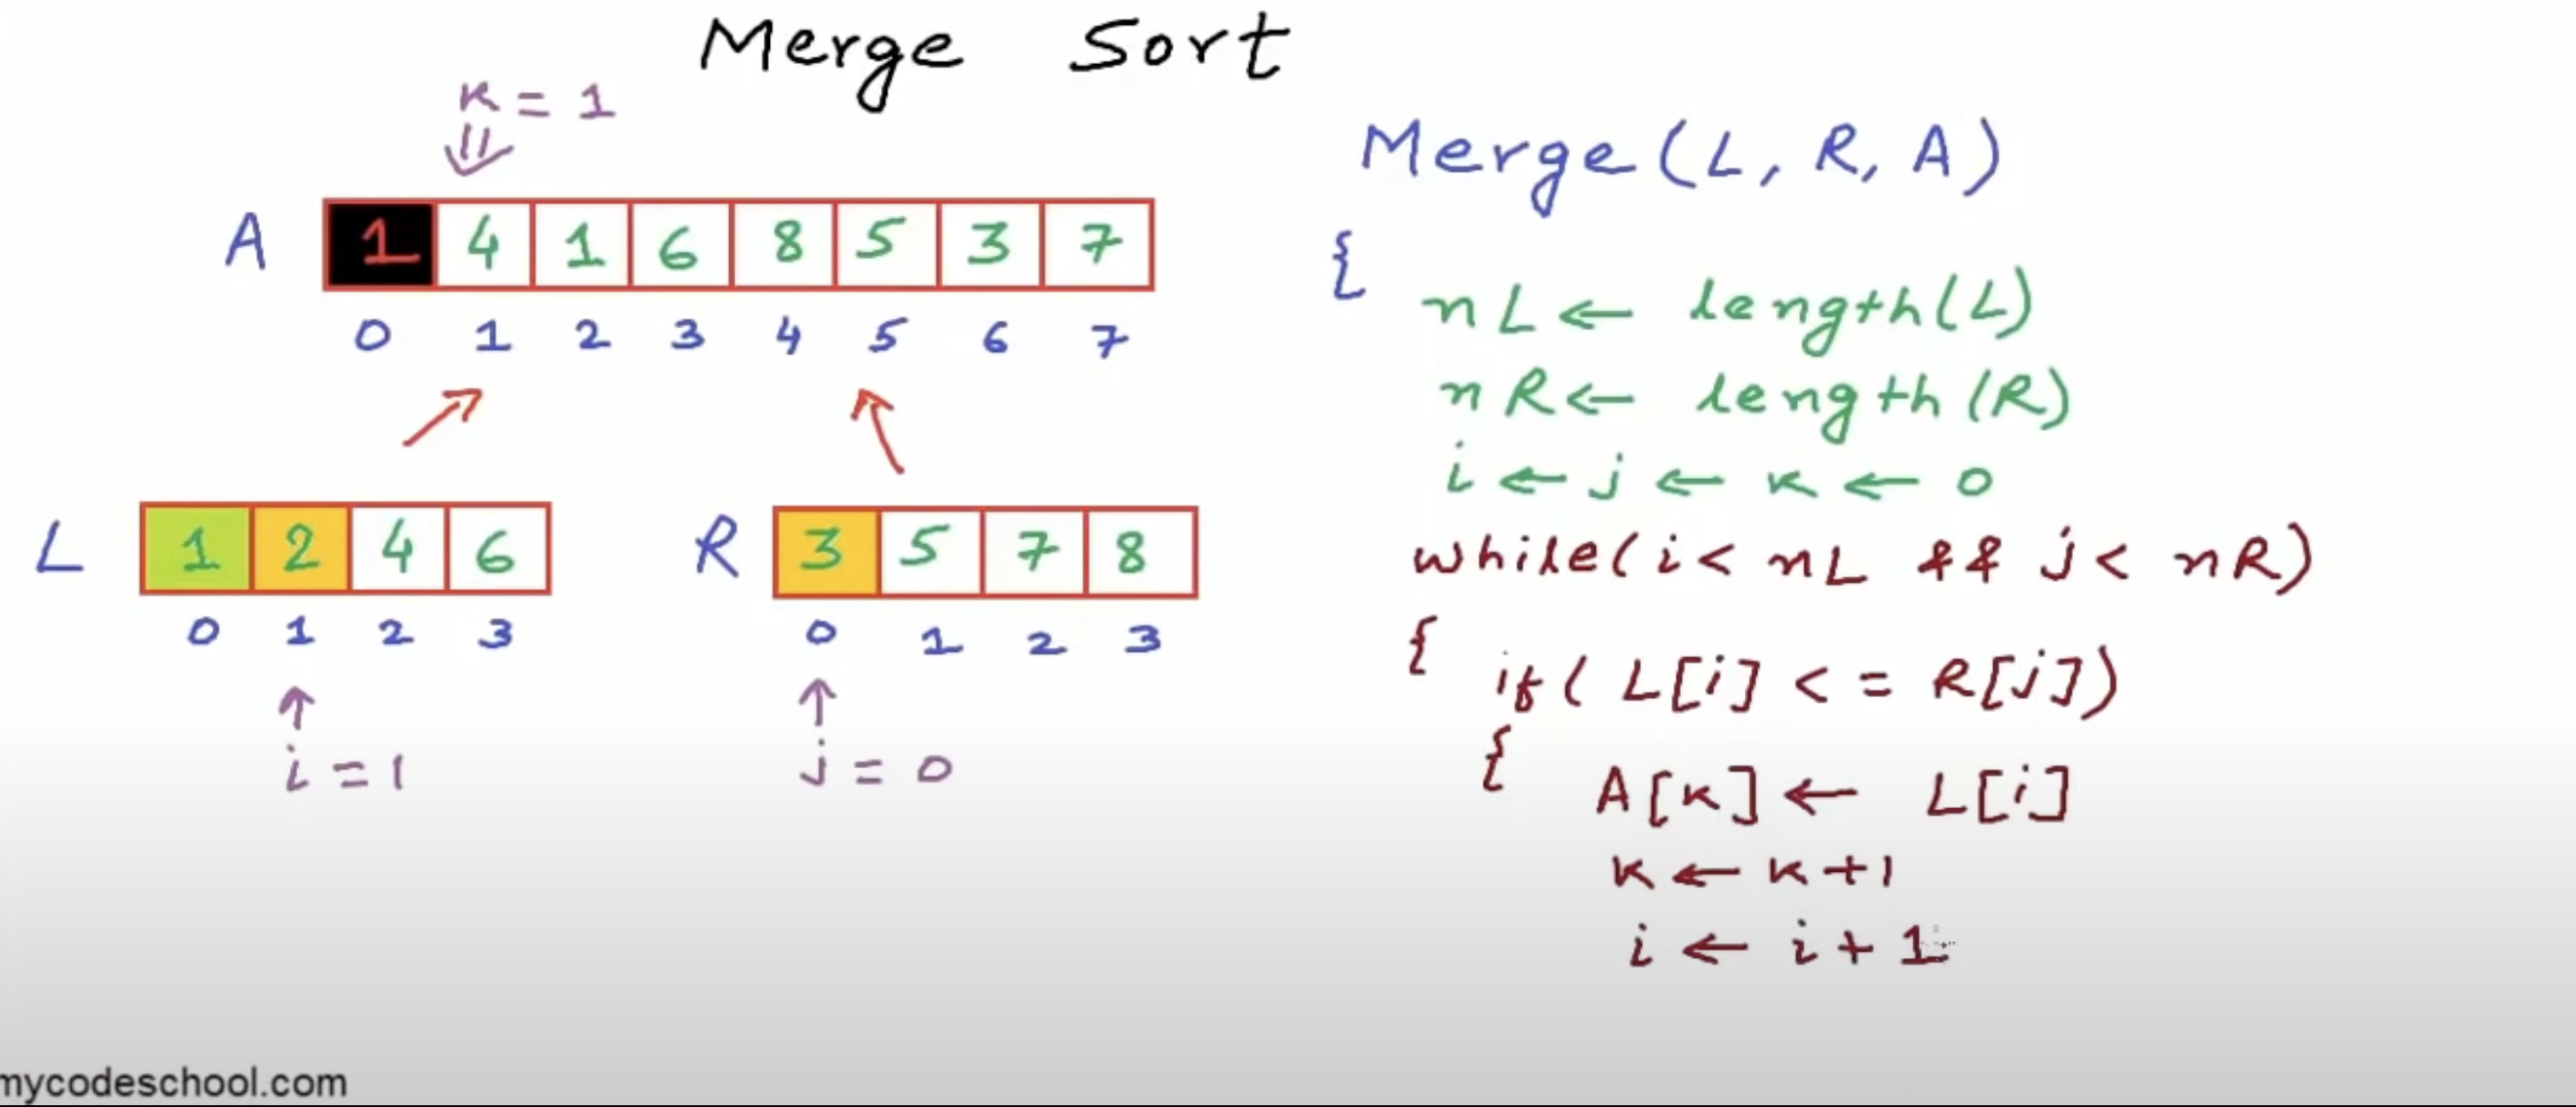 Merge Sort
k = 1
A 1 4 1 6 8 5 3 7
0 1 2 3 4 5 6 7
L 1 2 4 6
0 1 2 3
i = 1
R 3 5 7 8
0 1 2 3
j = 0
Merge(L, R, A)
{
nL ← length(L)
nR ← length(R)
i ← j ← k ← 0
while(i < nL && j < nR)
{ if( L[i] <= R[j])
{ A[k] ← L[i]
k ← k+1
i ← i+1
mycodeschool.com